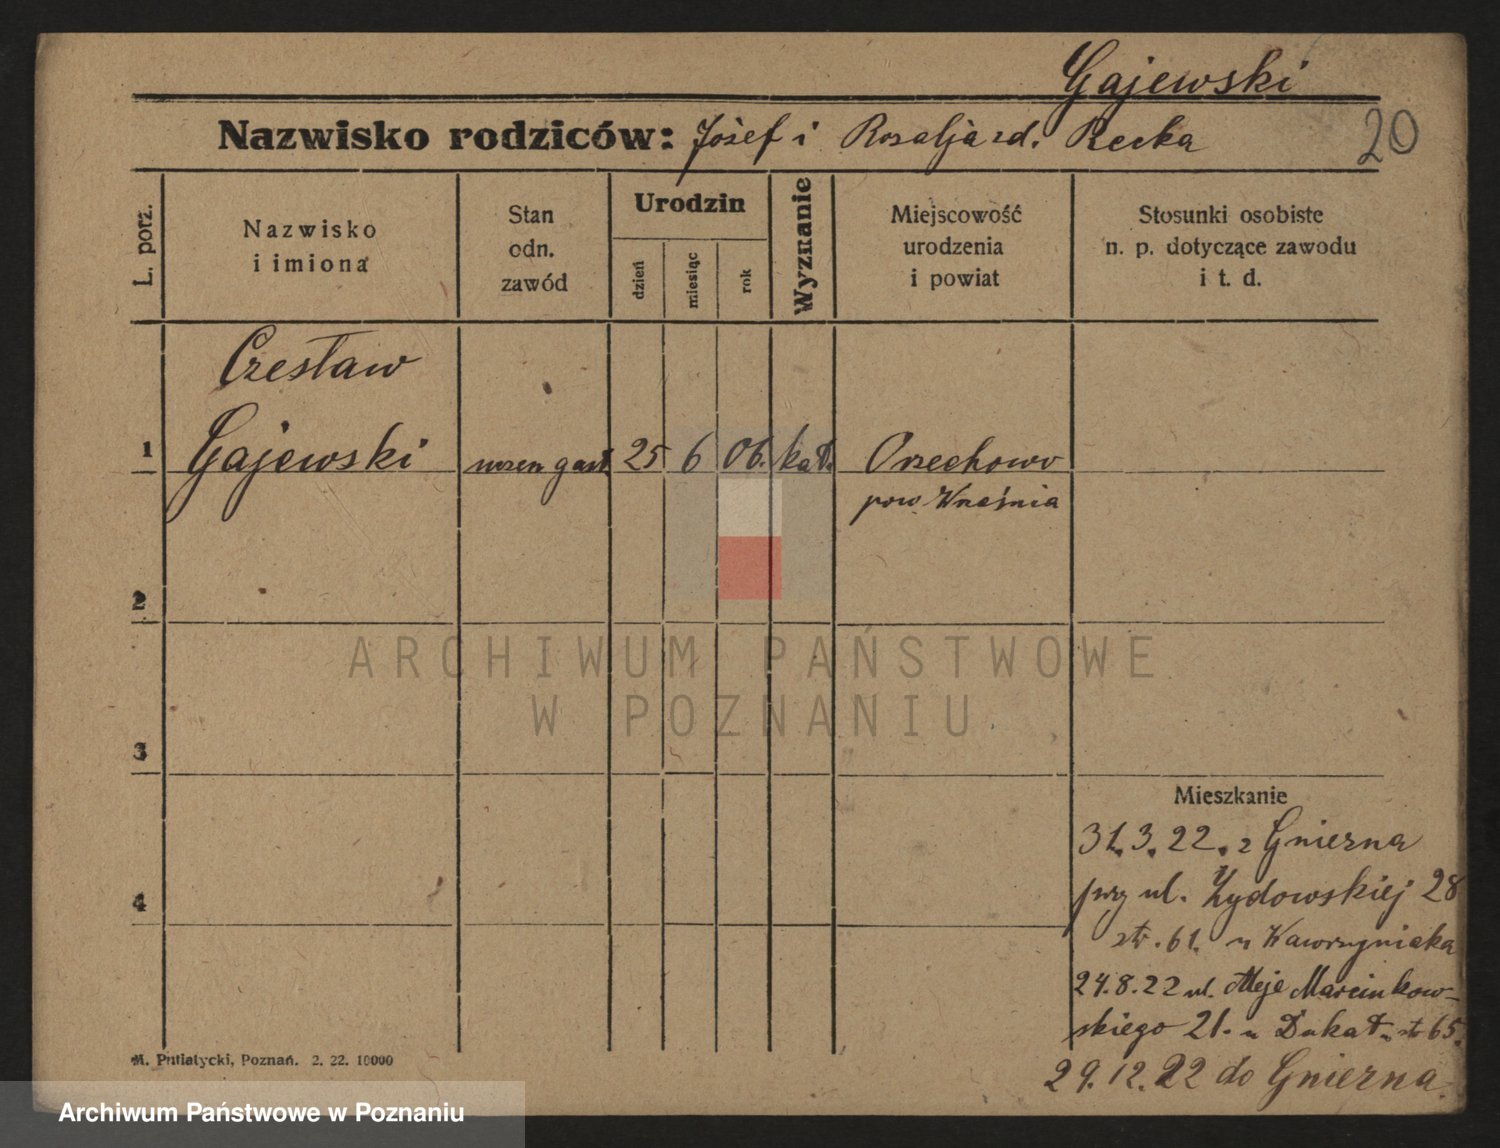 Gajewski
Nazwisko rodziców: Józef i Rozalja zd. Recka
20
L. porz.
Nazwisko
i imiona
Stan
odn.
zawód
Urodzin
dzień
miesiąc
rok
Wyznanie
Miejscowość
urodzenia
i powiat
Stosunki osobiste
n. p. dotyczące zawodu
i t. d.
Czesław
1 Gajewski uczen gast. 25 6 06. kat. Orzechowo
pow Września
2
ARCHIWUM PAŃSTWOWE
W POZNANIU
3
Mieszkanie
31.3.22. z Gniezna
przy ul. Żydowskiej 28
4
str. 61. u Wawrzyniaka
24.8.22 ul. Aleje Marcinkow-
skiego 21. u Dukat. str 65.
29.12.22 do Gniezna
M. Putiatycki, Poznań. 2. 22. 10000
Archiwum Państwowe w Poznaniu